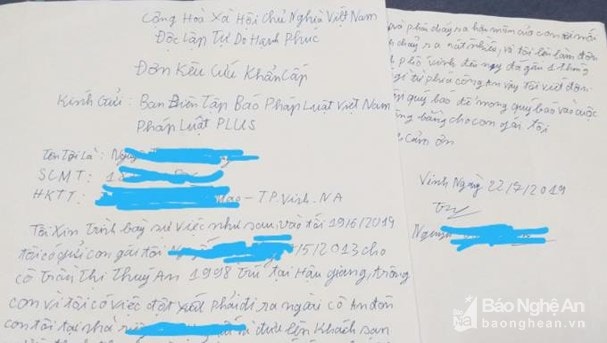 Cộng Hoà Xã Hội Chủ Nghĩa Việt Nam
Độc Lập Tự Do Hạnh Phúc
Đơn Kêu Cứu Khẩn Cấp
Kính Gửi: Ban Biên Tập Báo Pháp Luật Việt Nam
Pháp Luật PLUS
Tên Tôi Là:
SCMT:
HKTT: - TP. Vinh. NA
Tôi Xin Trình bày sự việc như sau, vào tối 19/6/2019
tôi có gửi con gái tôi /5/2013 cho
cô Trần Thị Thuý An 1998 trú tại Hậu giang, trông
con vì tôi có việc đột xuất phải đi ra ngoài cô An đón
con tôi tại nhà và đưa lên Khách sạn
ra hậu môn của con tôi mới
chảy ra rất nhiều, và tôi lên làm đơn
phố Vinh đến nay đã gần 1 tháng
gì từ phía công An vậy tôi viết đơn
quý báo để mong quý báo vào cuộc
bằng cho con gái tôi
Cảm ơn
Vinh Ngày 22/7/2019
Báo Nghệ An
baonghean.vn